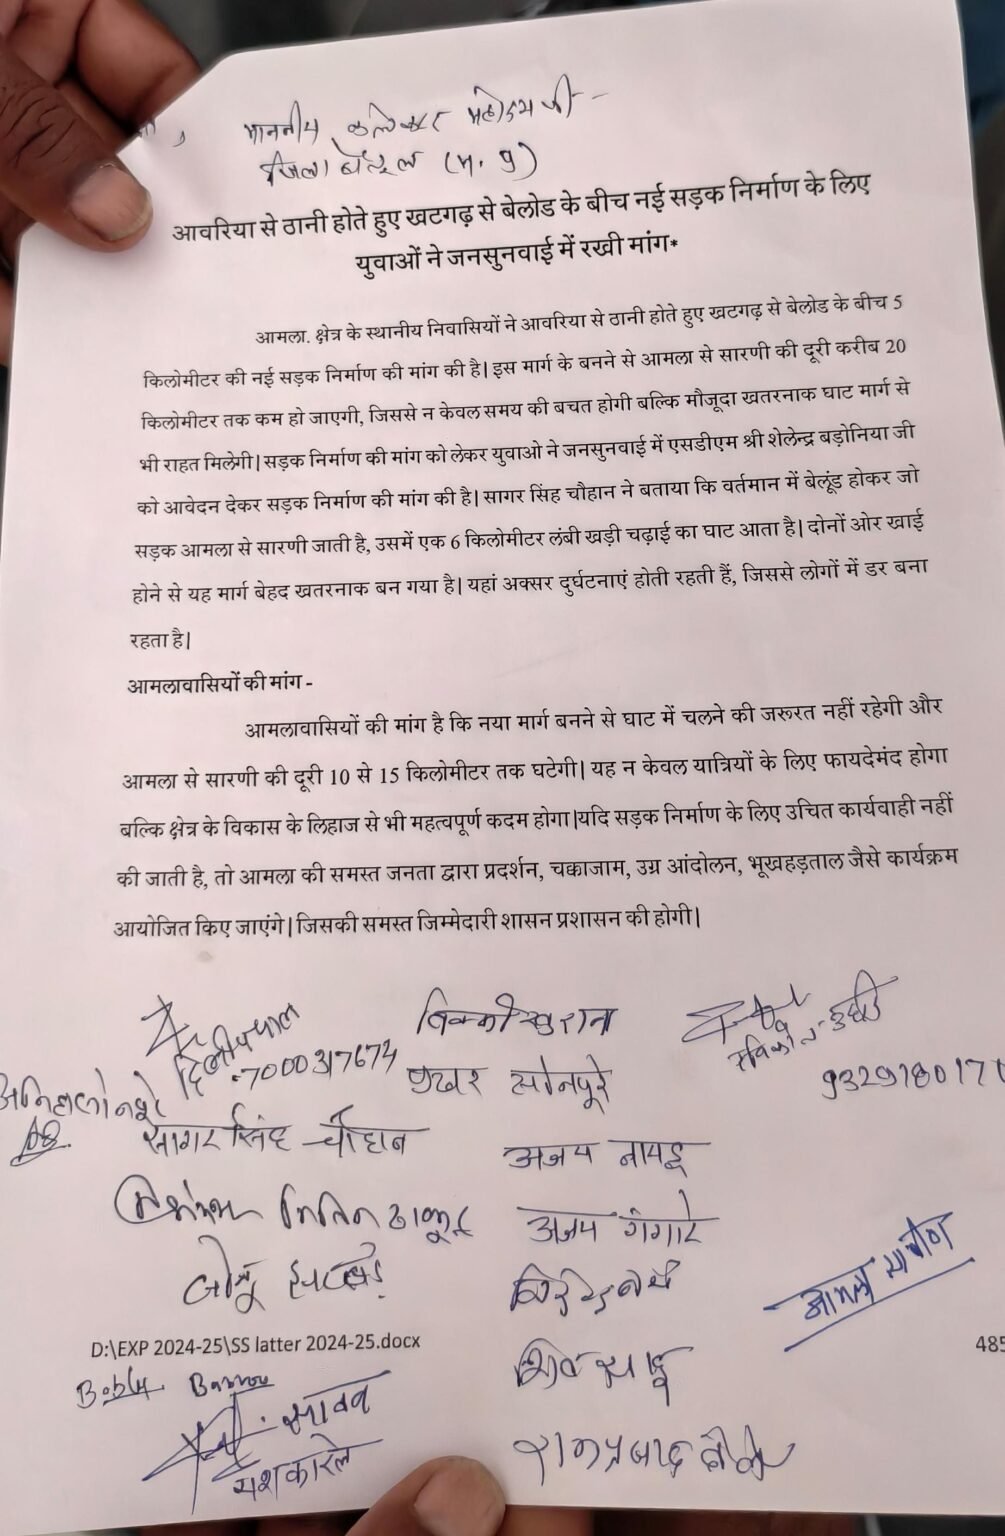 माननीय कलेक्टर महोदय जी -
जिला बेतूल (म. प्र)
आवरिया से ठानी होते हुए खटगढ़ से बेलोड के बीच नई सड़क निर्माण के लिए
युवाओं ने जनसुनवाई में रखी मांग*
आमला. क्षेत्र के स्थानीय निवासियों ने आवरिया से ठानी होते हुए खटगढ़ से बेलोड के बीच 5
किलोमीटर की नई सड़क निर्माण की मांग की है। इस मार्ग के बनने से आमला से सारणी की दूरी करीब 20
किलोमीटर तक कम हो जाएगी, जिससे न केवल समय की बचत होगी बल्कि मौजूदा खतरनाक घाट मार्ग से
भी राहत मिलेगी। सड़क निर्माण की मांग को लेकर युवाओ ने जनसुनवाई में एसडीएम श्री शेलेन्द्र बड़ोनिया जी
को आवेदन देकर सड़क निर्माण की मांग की है। सागर सिंह चौहान ने बताया कि वर्तमान में बेलूंड होकर जो
सड़क आमला से सारणी जाती है, उसमें एक 6 किलोमीटर लंबी खड़ी चढ़ाई का घाट आता है। दोनों ओर खाई
होने से यह मार्ग बेहद खतरनाक बन गया है। यहां अक्सर दुर्घटनाएं होती रहती हैं, जिससे लोगों में डर बना
रहता है।
आमलावासियों की मांग -
आमलावासियों की मांग है कि नया मार्ग बनने से घाट में चलने की जरूरत नहीं रहेगी और
आमला से सारणी की दूरी 10 से 15 किलोमीटर तक घटेगी। यह न केवल यात्रियों के लिए फायदेमंद होगा
बल्कि क्षेत्र के विकास के लिहाज से भी महत्वपूर्ण कदम होगा।यदि सड़क निर्माण के लिए उचित कार्यवाही नहीं
की जाती है, तो आमला की समस्त जनता द्वारा प्रदर्शन, चक्काजाम, उग्र आंदोलन, भूखहड़ताल जैसे कार्यक्रम
आयोजित किए जाएंगे। जिसकी समस्त जिम्मेदारी शासन प्रशासन की होगी।
दिलीप पाल
7000317674
विक्की खुराना
सोनपूरे
9329180171
सागर सिंह चौहान
अजय नायडू
नितिन ठाकुर
अजय गंगारे
D:\EXP 2024-25\SS latter 2024-25.docx
485
शिव साहू
यश कारले